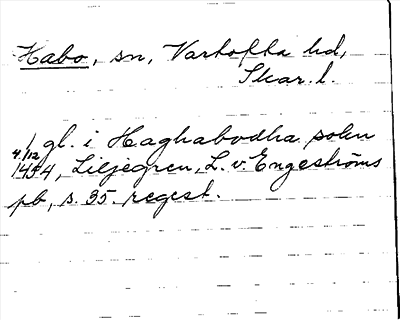 Habo, sn, Vartofta hd,
Skar. l.
gl. i Haghabodha sokn
4/12
1454, Liljegren, L. v. Engeströms
pb, s. 35. regest.